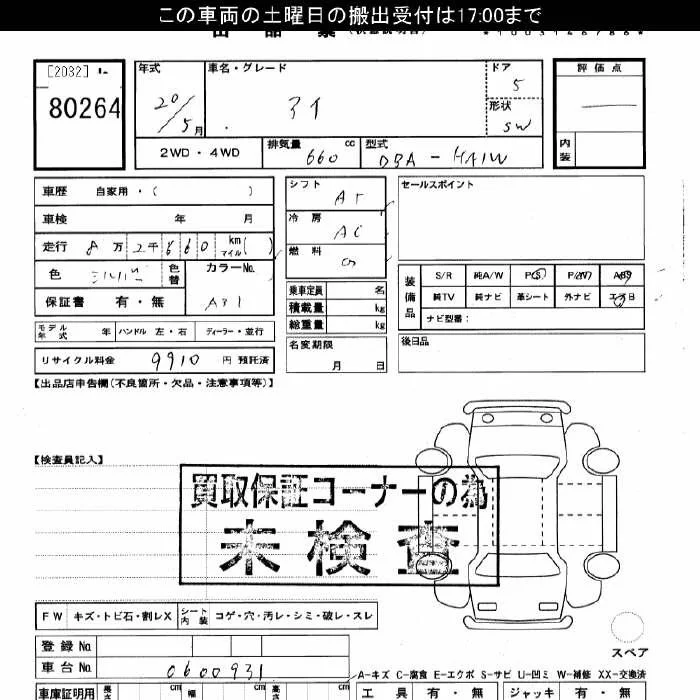 この車両の土曜日の搬出受付は17:00まで
[2032]
80264
年式 20/5月
車名・グレード アイ
ドア 5
形状 SW
評価点
内装
2WD・4WD
排気量 660 cc
型式 DBA-HA1W
車歴 自家用・( )
車検 年 月
走行 8万2千660 km マイル( )
色 シルバー 色替
カラーNo. A31
保証書 有・無
シフト AT
冷房 AC
燃料
乗車定員 名
積載量 kg
総重量 kg
名変期限 月 日
セールスポイント
装備品 S/R 純A/W P(S) P/W ABS
純TV 純ナビ 革シート 外ナビ エアB
ナビ型番:
後日品
モデル年式 年 ハンドル 左・右 ディーラー・並行
リサイクル料金 9910 円 預託済
【出品店申告欄(不良箇所・欠品・注意事項等)】
【検査員記入】
買取保証コーナーの為
未検査
FW キズ・トビ石・割レX シート内装 コゲ・穴・汚レ・シミ・破レ・スレ
スペア
登録No.
車台No. 0600931
A-キズ C-腐食 E-エクボ S-サビ U-凹ミ W-補修 XX-交換済
車庫証明用 長さ cm 幅 cm 高さ cm
工具 有・無 ジャッキ 有・無